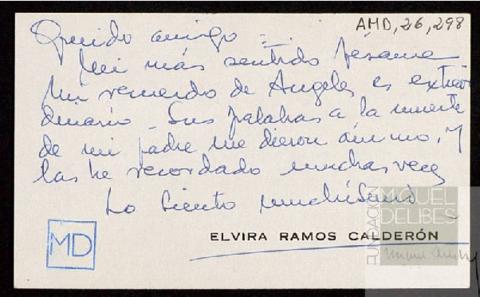 AMD, 26, 298
Querido amigo =
Mi más sentido pésame
Mi recuerdo de Angeles es extraor
dinario. Sus palabras a la muerte
de mi padre me dieron ánimo, y
las he recordado muchas veces
Lo siento muchísimo
ELVIRA RAMOS CALDERÓN
MD
FUNDACIÓN
MIGUEL
DELIBES